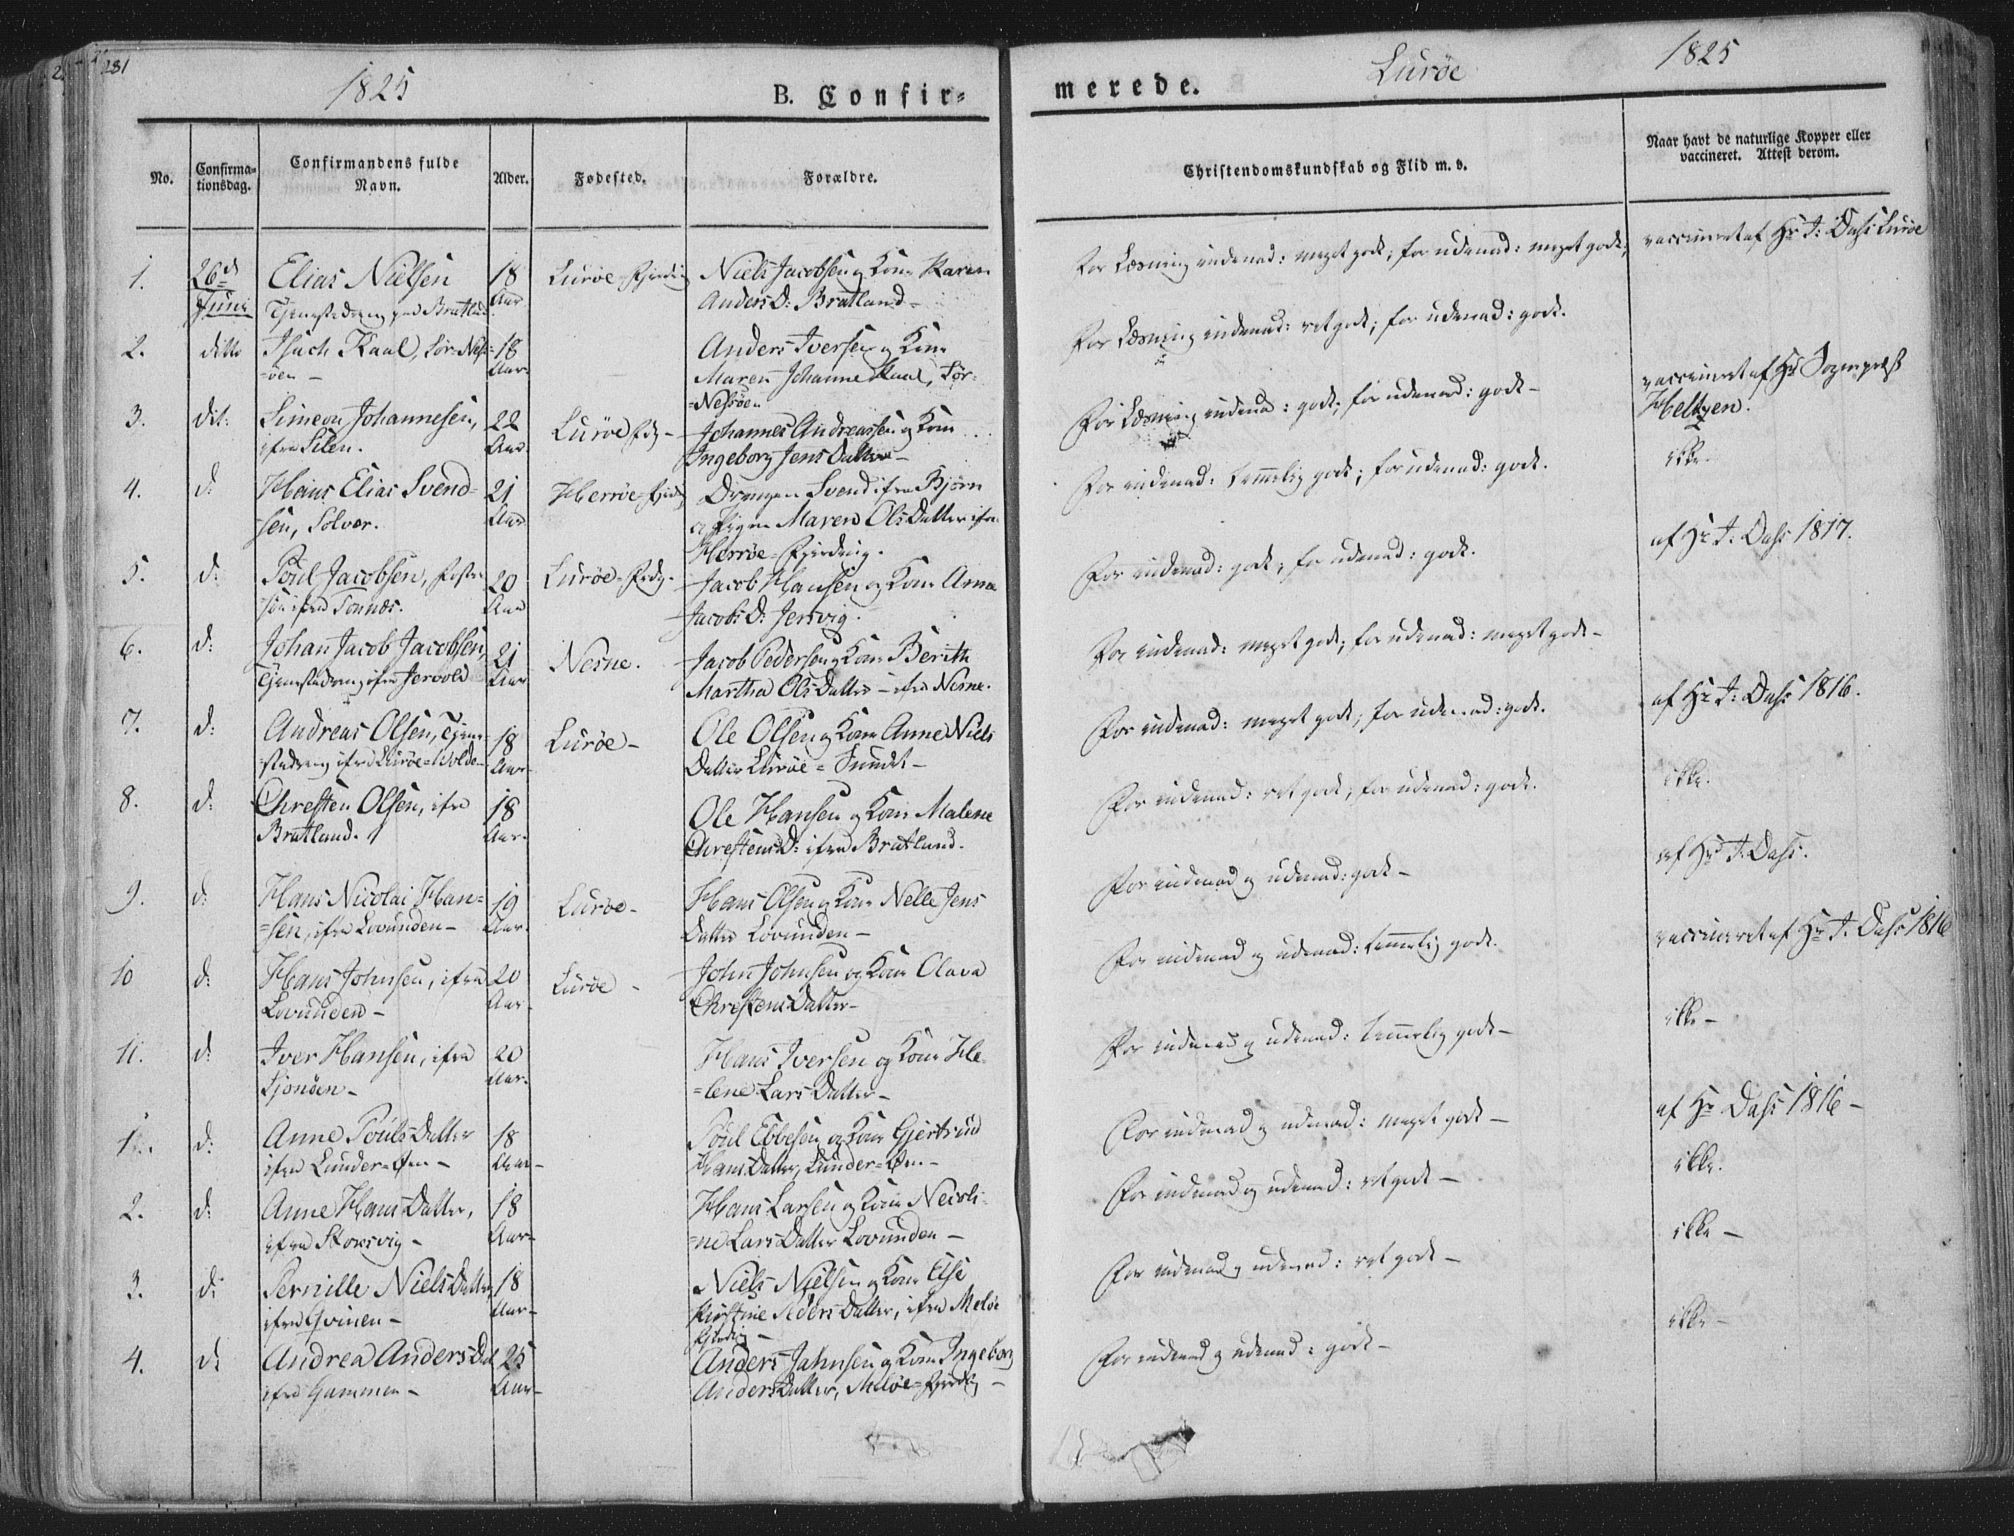 281
1825
B. Confir-
merede.
Lurøe
1825
No.
Confirma-
tionsdag.
Confirmandens fulde
Navn.
Alder.
Fødested.
Forældre.
Christendomskundskab og Flid m. v.
Naar havt de naturlige Kopper eller
vaccineret. Attest derom.
1.
26d
Juni
Elias Nielsen
Tjenestedreng paa Bratland
18
Aar
Lurøe-Fjerding
Niels Jacobsen og Kone Karen
Anders D: Bratland-
For Læsning indenad: meget godt; for udenad: meget godt;
vaccineret af Hr J: Dass Lurøe
2.
ditto
Isach Kaal, Sør-Nesø-
=øen-
18
Aar
Anders Iversen og Kone
Maren Johanne Kaal, Sør-
=Nesøen
For Læsning indenad: ret godt; for udenad: godt.
vaccineret af Hr Sogneprest
Heltzen.
3.
dit:
Simeon Johannesen,
ifra Silen.
22
Aar
Lurøe Fdg-
Johannes Andreassen og Kone
Ingeborg Jens Datter-
For Læsning indenad: godt; for udenad: godt-
ikke.
4.
d:
Hans Elias Svend-
sen, Solvær.
21
Aar
Herrøe-Fjerding
Drengen Svend ifra Bjørn
og Pigen Maren Ols Datter ifra
Herrøe-Fjerding.
For indenad: temmelig godt; for udenad: godt.
af Hr J: Dass 1817.
5.
d:
Poul Jacobsen, Foster-
søn ifra Tonnes.
20
Aar
Lurøe-Frdg-
Jacob Hansen og Kone Anne
Jacobs D: Jersvig.
For indenad: godt; for udenad: godt.
6.
d:
Johan Jacob Jacobsen
Tjenestedreng ifra Jervold
21
Aar
Nesne.
Jacob Pedersen og Kone Berith
Martha Ols Datter - ifra Nesne.
For indenad: meget godt; for udenad: meget godt-
af Hr J: Dass 1816.
7.
d:
Andreas Olsen, Tjene-
stedreng ifra Lurøe-Wolde-
18
Aar-
Lurøe-
Ole Olsen og Kone Anne Niels
Datter Lurøe-Sundet-
For indenad: meget godt; for udenad: godt.
ikke.
8.
d:
Chresten Olsen, ifra
Bratland.
18
Aar-
Ole Hansen og Kone Malene
Chrestens D: ifra Bratland.
For indenad: ret godt; for udenad: godt.
af Hr J. Dass.
9.
d:
Hans Nicolai Han-
=sen, ifra Lovunden-
19
Aar-
Lurøe-
Hans Olsen og Kone Nelle Jens
Datter Lovunden-
For indenad og udenad: godt-
vaccineret af Hr J. Dass 1816
10
d:
Hans Johnsen, ifra
Lovunden-
20
Aar-
Lurøe-
John Johnsen og Kone Olava
Chrestens Datter-
For indenad og udenad: temmelig godt.
ikke-
11.
d:
Iver Hansen, ifra
Sjonøen-
20
Aar-
Hans Iversen og Kone He-
=lene Lars Datter-
For indenad og udenad: temmelig godt-
af Hr Dass 1816-
1.
d:
Anne Pouls Datter
ifra Lunder-Øen-
18
Aar-
Poul Ebbesen og Kone Gjertrud
Hans Datter, Lunder-Øen-
For indenad og udenad: meget godt-
ikke.
2.
d:
Anne Hans Datter,
ifra Stoksvig-
18
Aar-
Hans Larsen og Kone Necoli-
=ne Lars Datter Lovunden-
For indenad og udenad: ret godt-
ikke-
3.
d:
Pernille Niels Datter
ifra Qvinen-
18
Aar-
Niels Nielsen og Kone Else
Kirstine Peders Datter, ifra Meløe
Fjerding-
For indenad og udenad: ret godt-
ikke-
4.
d:
Andrea Anders Dat
ifra Gammen-
25
Aar-
Anders Jahnsen og Kone Ingeborg
Anders Datter, Meløe-Fjerdg-
For indenad og udenad: godt-